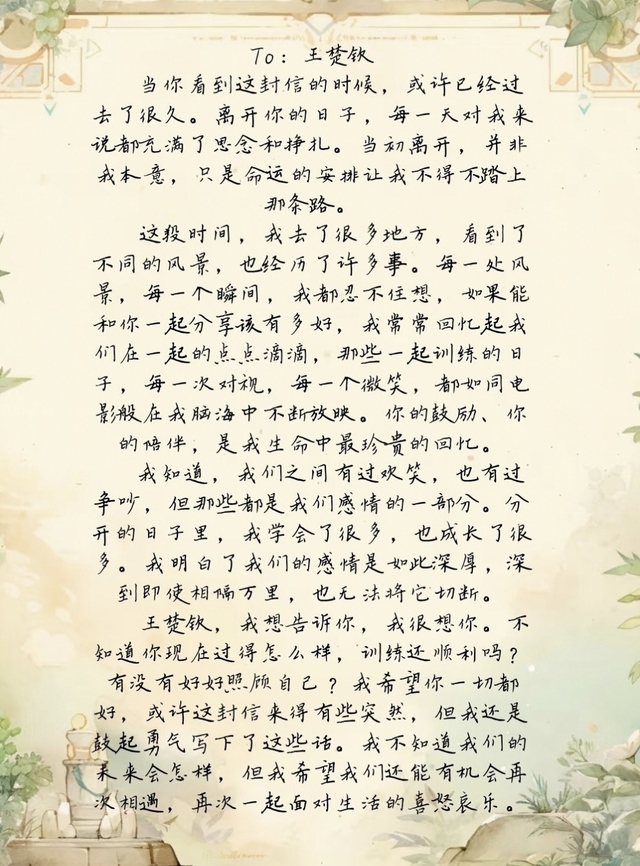 To：王楚钦
当你看到这封信的时候，或许已经过
去了很久。离开你的日子，每一天对我来
说都充满了思念和挣扎。当初离开，并非
我本意，只是命运的安排让我不得不踏上
那条路。
这段时间，我去了很多地方，看到了
不同的风景，也经历了许多事。每一处风
景，每一个瞬间，我都忍不住想，如果能
和你一起分享该有多好，我常常回忆起我
们在一起的点点滴滴，那些一起训练的日
子，每一次对视，每一个微笑，都如同电
影般在我脑海中不断放映。你的鼓励、你
的陪伴，是我生命中最珍贵的回忆。
我知道，我们之间有过欢笑，也有过
争吵，但那些都是我们感情的一部分。分
开的日子里，我学会了很多，也成长了很
多。我明白了我们的感情是如此深厚，深
到即使相隔万里，也无法将它切断。
王楚钦，我想告诉你，我很想你。不
知道你现在过得怎么样，训练还顺利吗？
有没有好好照顾自己？我希望你一切都
好，或许这封信来得有些突然，但我还是
鼓起勇气写下了这些话。我不知道我们的
未来会怎样，但我希望我们还能有机会再
次相遇，再次一起面对生活的喜怒哀乐。